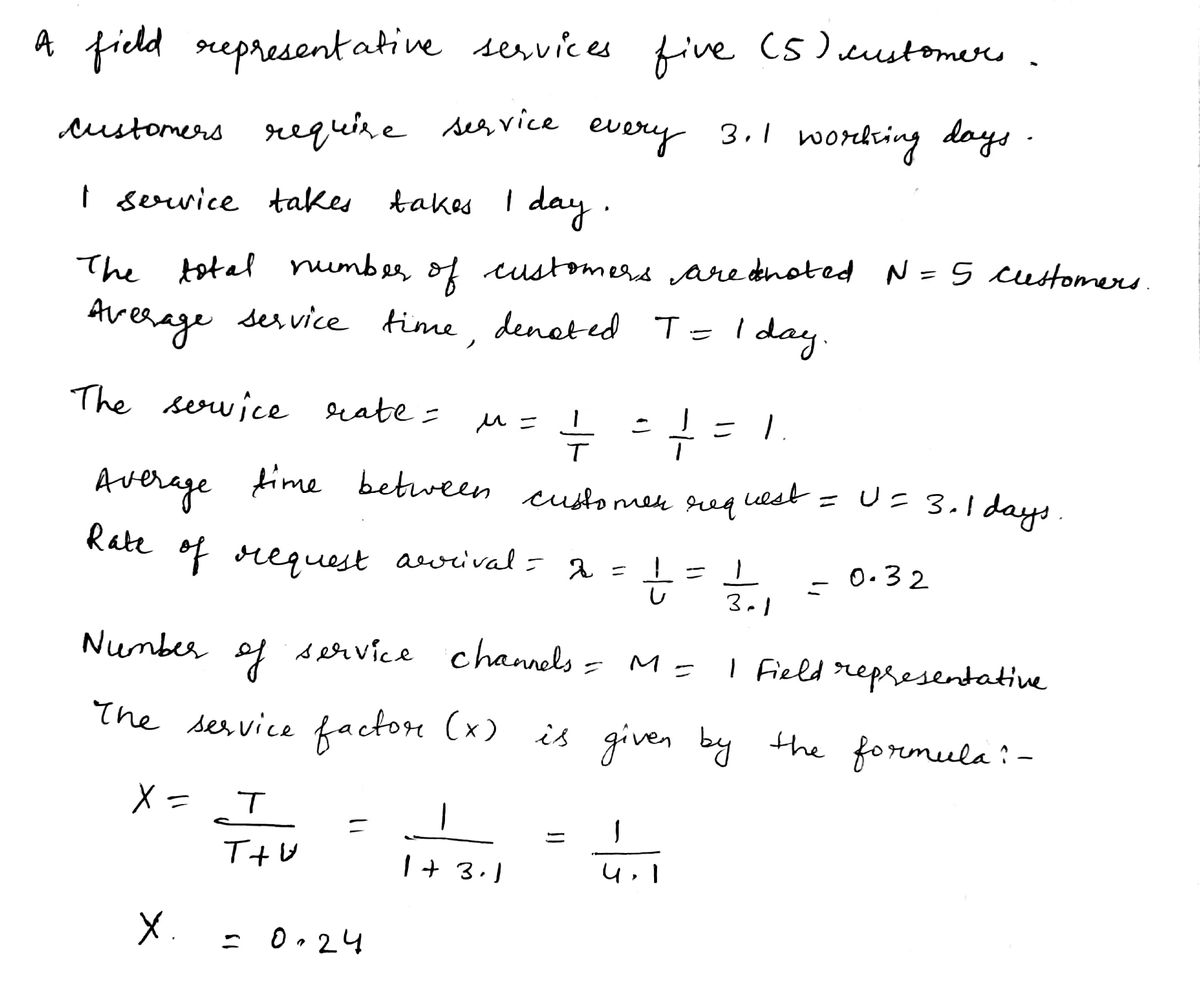 A field representative services five (5) customers.
customers require service every 3.1 working days.
1 service takes takes 1 day.
The total number of customers are dnoted N = 5 customers.
Average service time, denoted T = 1 day.
The service rate = μ = 1/T = 1/1 = 1.
Average time between customer request = U = 3.1 days.
Rate of request arrival = λ = 1/U = 1/3.1 = 0.32
Number of service channels = M = 1 Field representative
The service factor (x) is given by the formula :-
X = T/(T+U) = 1/(1+3.1) = 1/4.1
X. = 0.24